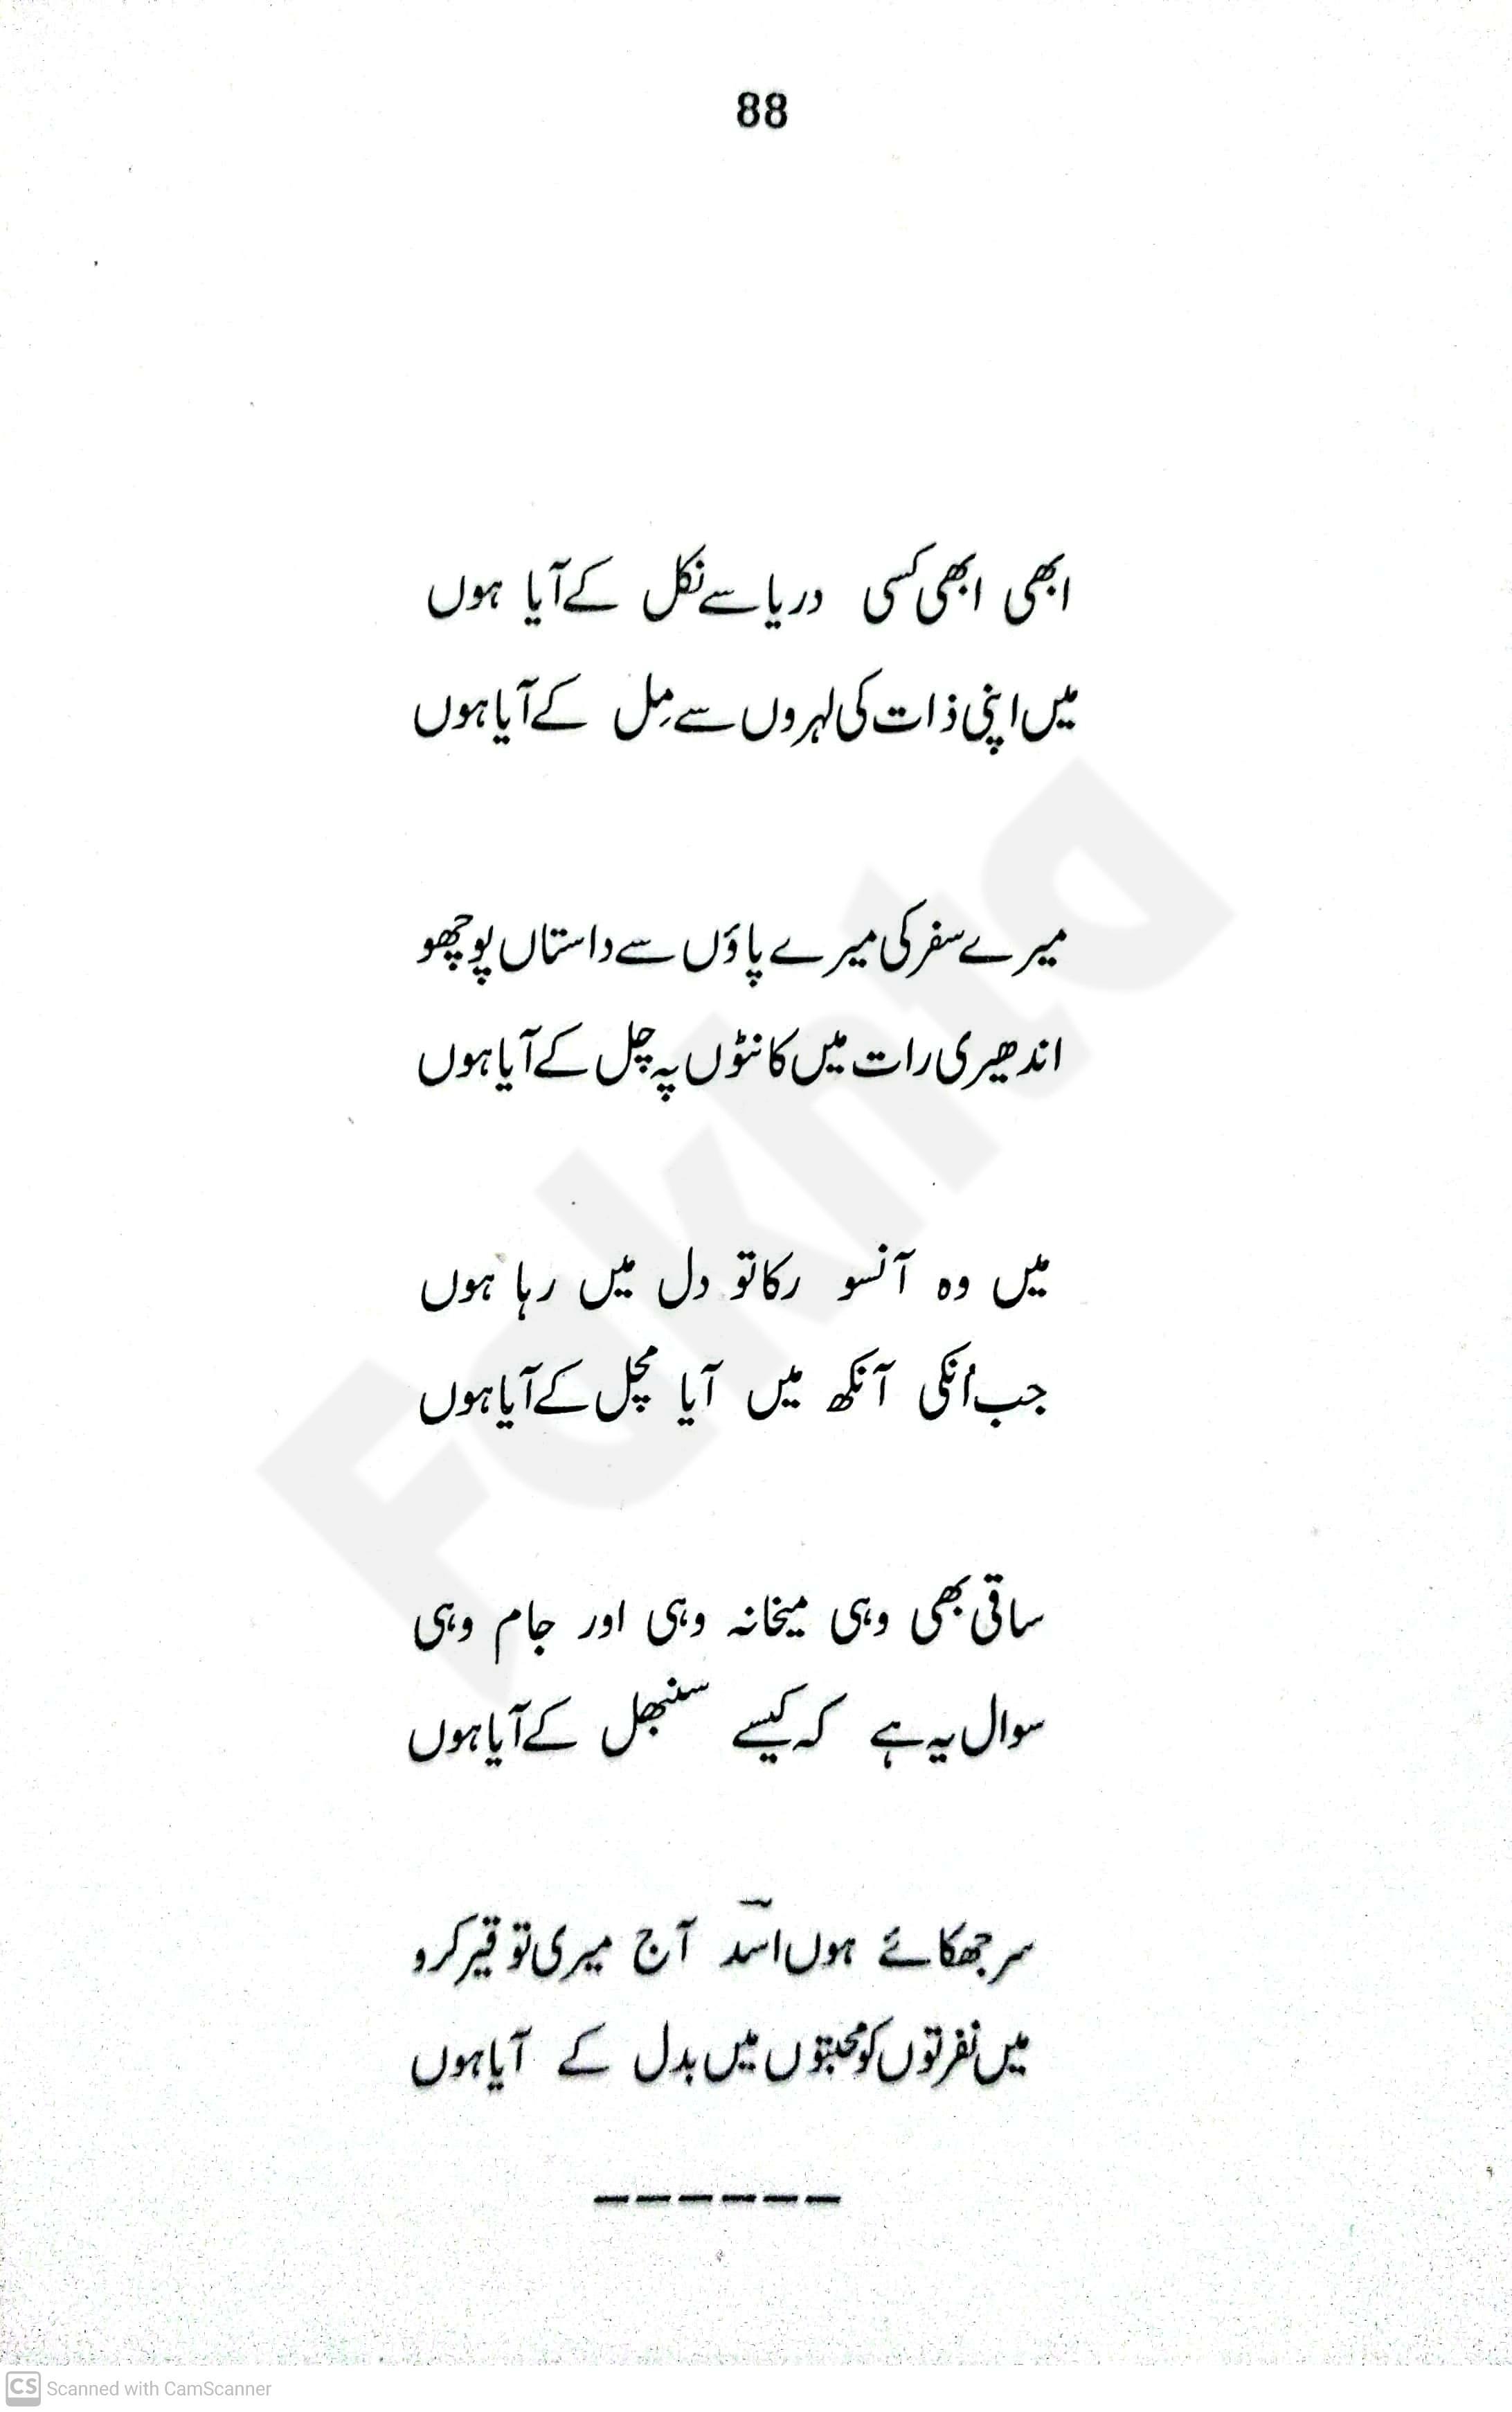 88
ابھی ابھی کسی دریا سے نکل کے آیا ہوں
میں اپنی ذات کی لہروں سے مِل کے آیا ہوں
میرے سفر کی میرے پاؤں سے داستاں پوچھو
اندھیری رات میں کانٹوں پہ چل کے آیا ہوں
میں وہ آنسو رکا تو دل میں رہا ہوں
جب اُنکی آنکھ میں آیا مچل کے آیا ہوں
ساقی بھی وہی میخانہ وہی اور جام وہی
سوال یہ ہے کہ کیسے سنبھل کے آیا ہوں
سر جھکائے ہوں اسؔد آج میری توقیر کرو
میں نفرتوں کو محبتوں میں بدل کے آیا ہوں
------
Rekhta
CS Scanned with CamScanner